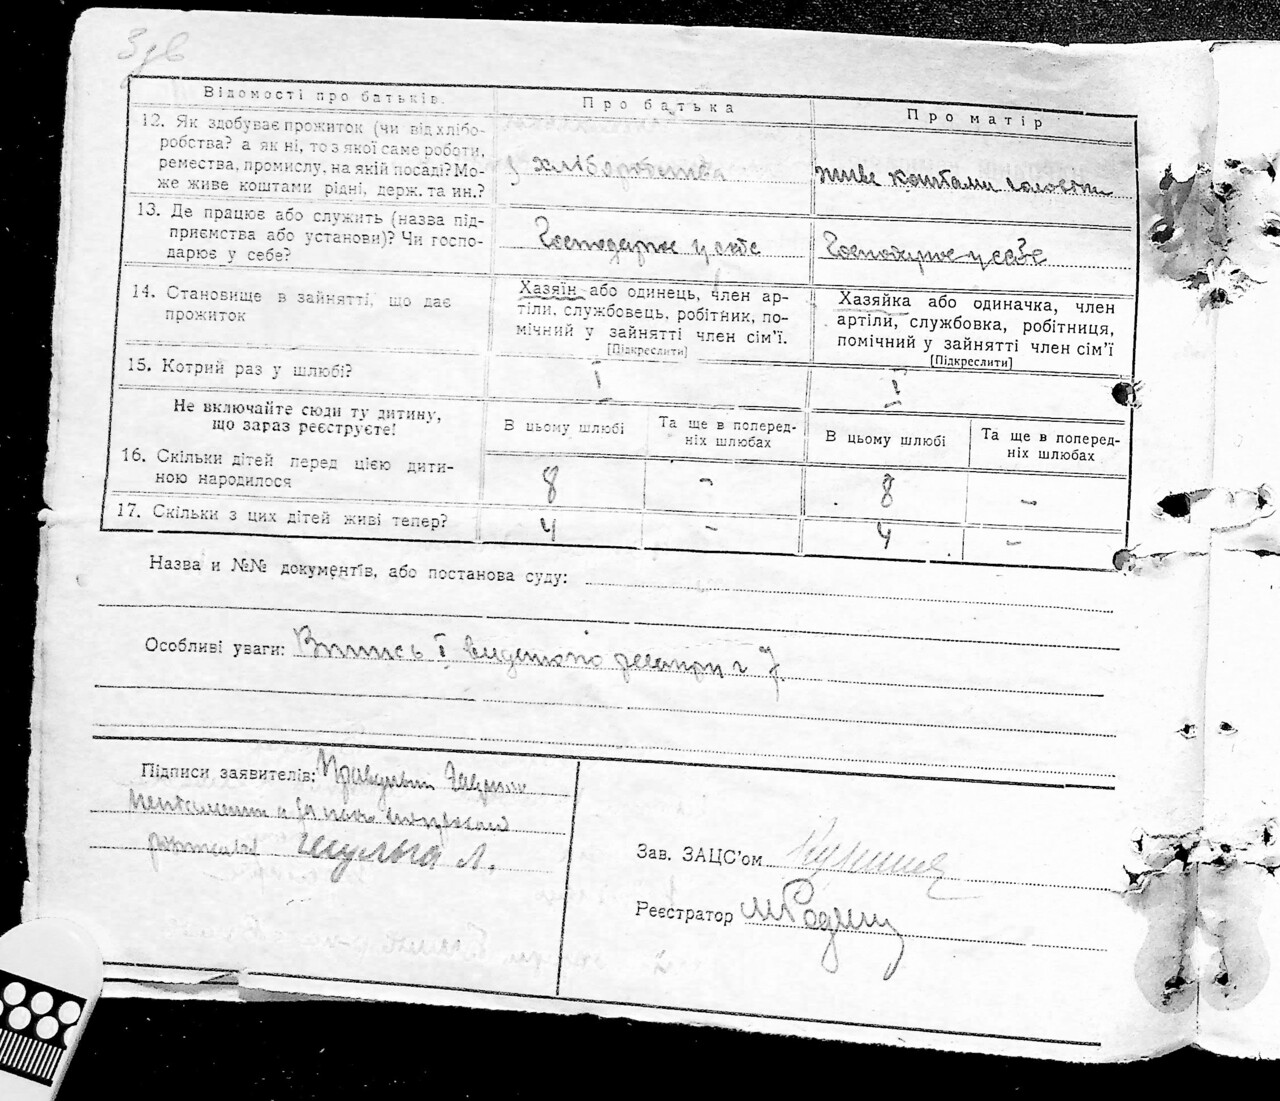 Ззв
Відомості про батьків. Про батька Про матір
12. Як здобуває прожиток (чи від хлібо-
робства? а як ні, то з якої саме роботи,
ремества, промислу, на якій посаді? Мо-
же живе коштами рідні, держ. та ин.?
з хліборобства
живе коштами чоловіка
13. Де працює або служить (назва під-
приємства або установи)? Чи госпо-
дарює у себе?
Господарює у себе
Господарює у себе
14. Становище в зайнятті, що дає
прожиток
Хазяїн або одинець, член ар-
тіли, службовець, робітник, по-
мічний у зайнятті член сім'ї.
[Підкреслити]
Хазяйка або одиначка, член
артіли, службовка, робітниця,
помічний у зайнятті член сім'ї
[Підкреслити]
15. Котрий раз у шлюбі? I I
Не включайте сюди ту дитину,
що зараз реєструєте!
В цьому шлюбі
Та ще в поперед-
ніх шлюбах
В цьому шлюбі
Та ще в поперед-
ніх шлюбах
16. Скільки дітей перед цією дити-
ною народилося
8 - 8 -
17. Скільки з цих дітей живі тепер? 4 - 4 -
Назва и №№ документів, або постанова суду:
Особливі уваги: Випись I
Підписи заявителів:
Шульга Л.
Зав. ЗАЦС'ом
Реєстратор